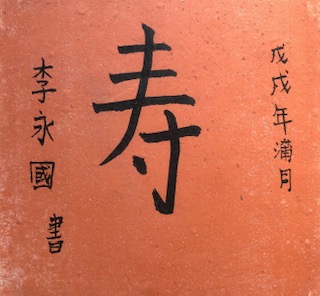 戊戌年蒲月
寿
李永國書